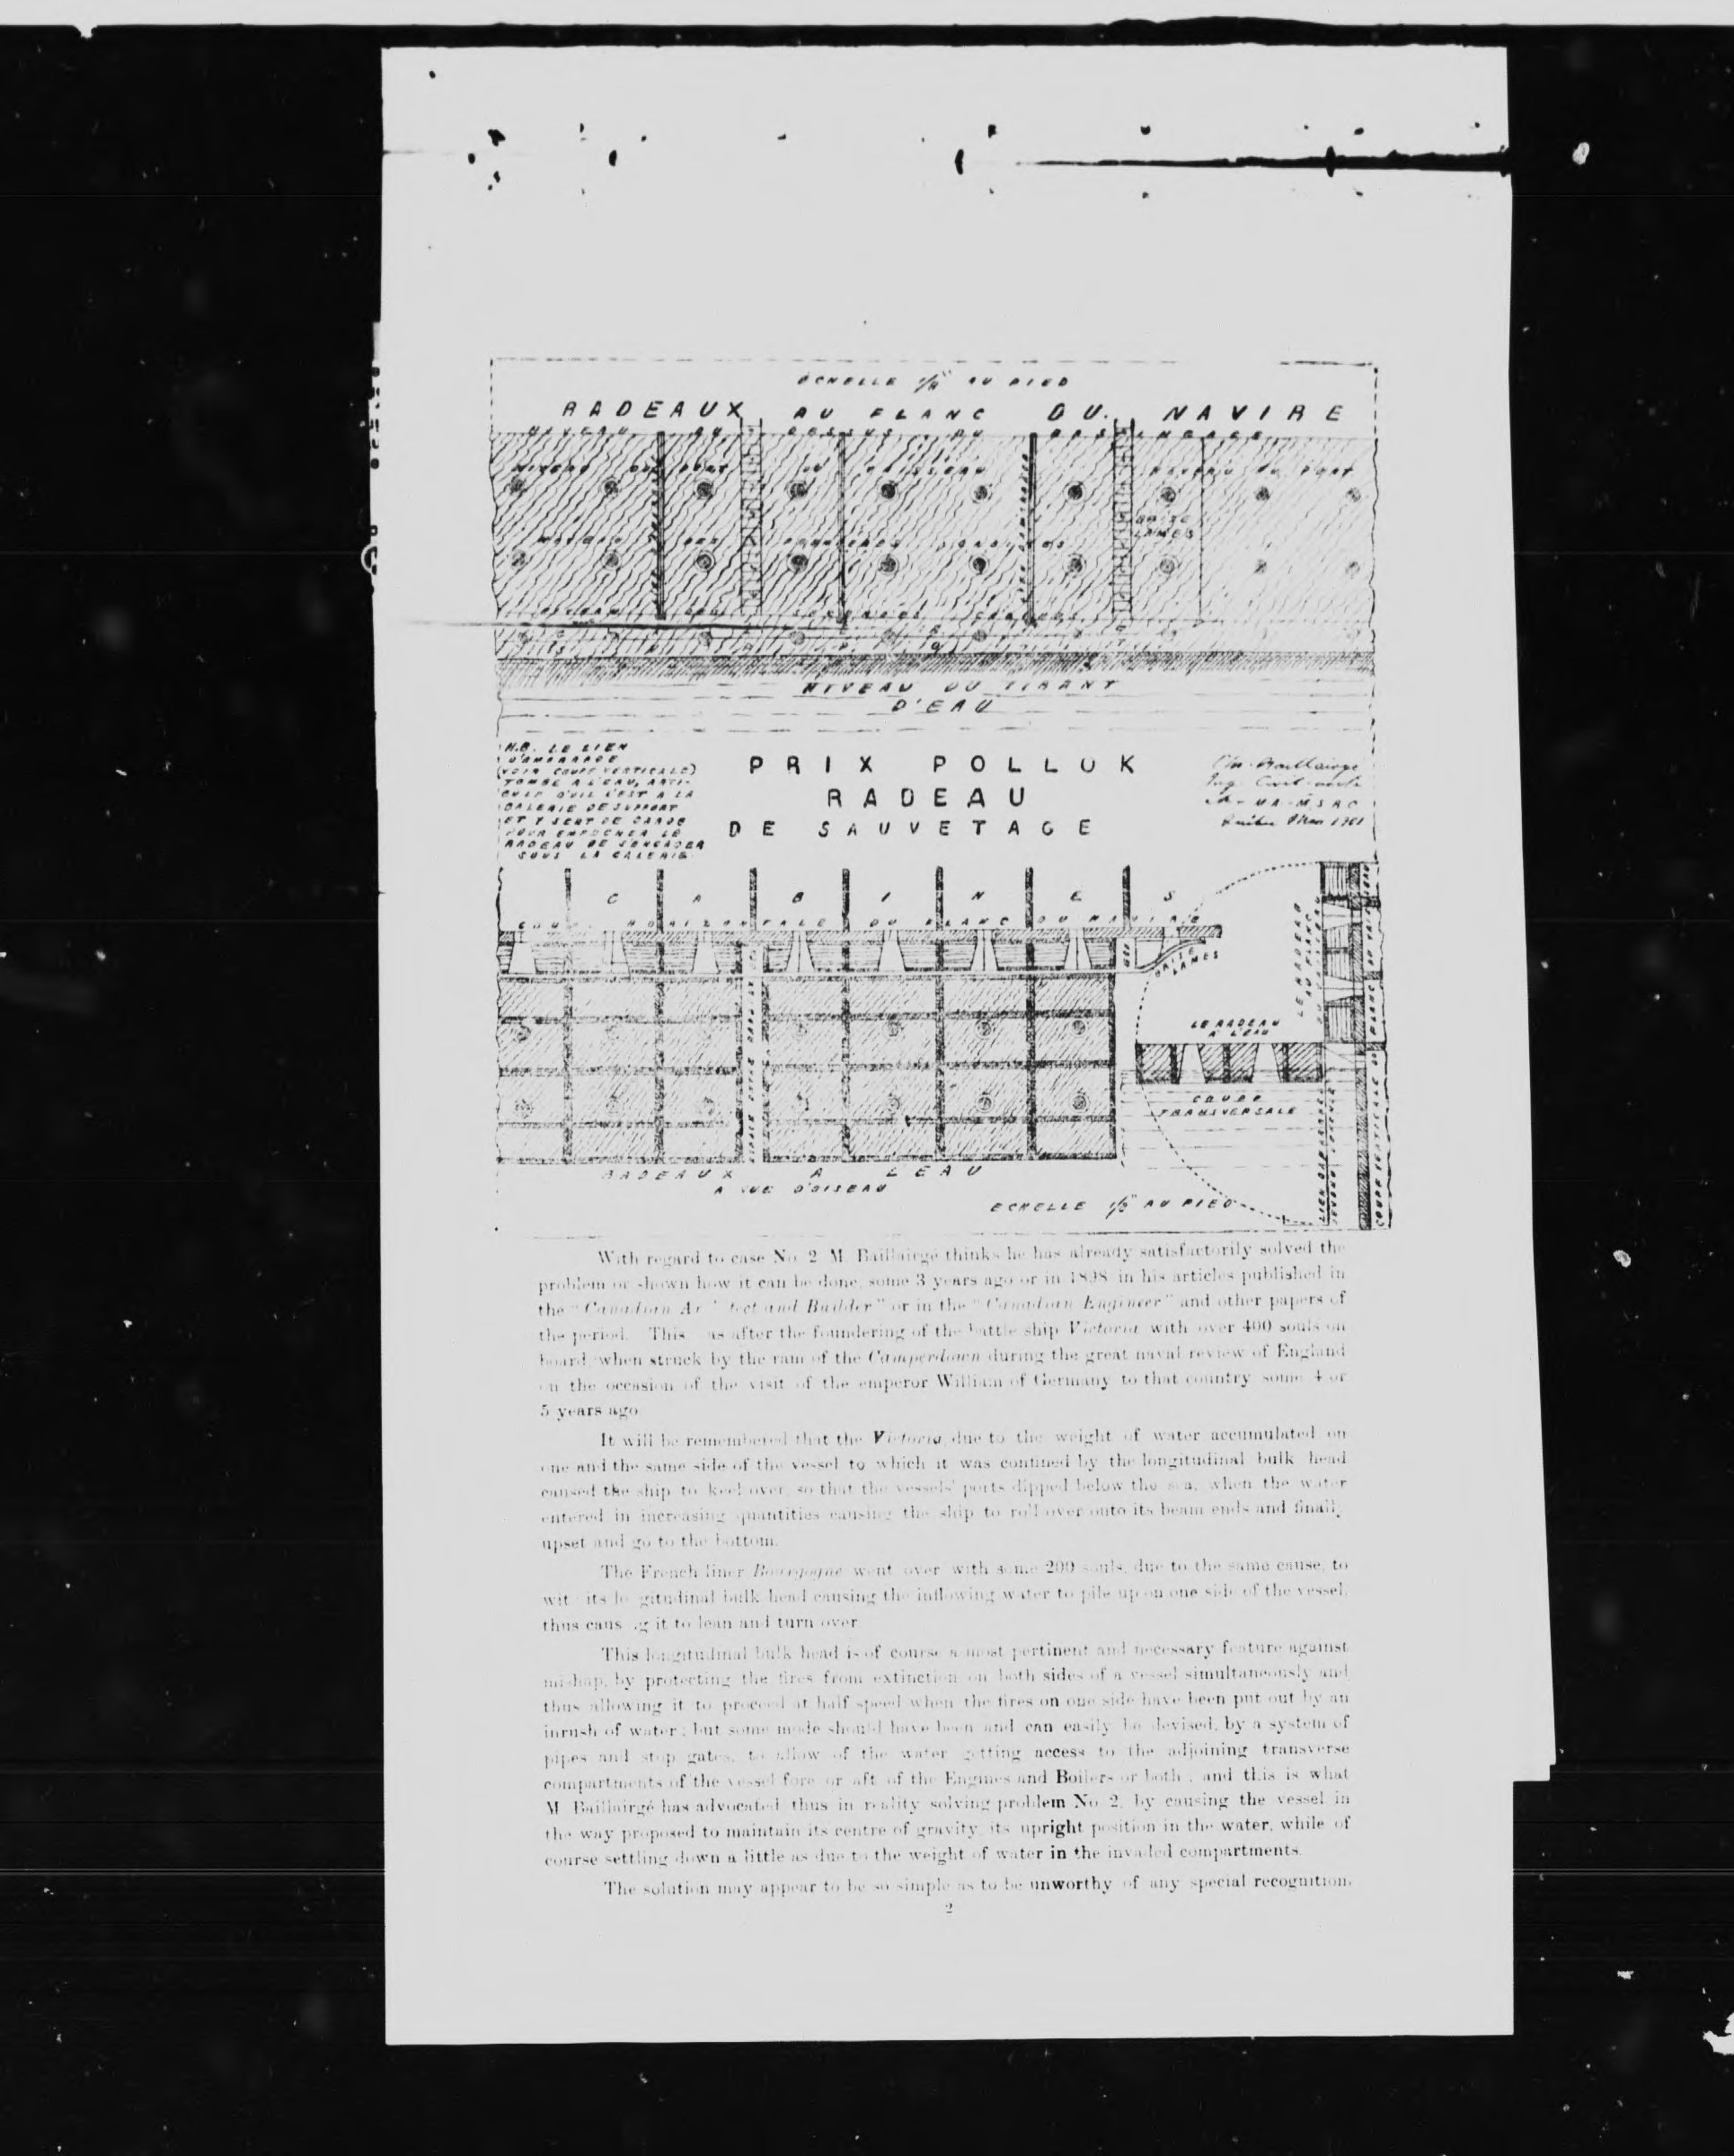 ECHELLE 1/8" AU PIED
RADEAUX AU FLANC DU NAVIRE
NIVEAU DU DESSUS DU BASTINGAGE
NIVEAU DU PONT DU VAISSEAU NIVEAU DU PONT
BRISE
LAMES
NIVEAU DU TIRANT
D'EAU
N.B. LE LIEN
D'AMARRAGE
(VOIR COUPE VERTICALE)
TOMBE A L'EAU, ARTI-
CULÉ QU'IL L'EST A LA
GALERIE DE SUPPORT
ET Y SERT DE GARDE
POUR EMPECHER LE
RADEAU DE S'ENGAGER
SOUS LA GALERIE.
PRIX POLLOK
RADEAU
DE SAUVETAGE
Ch. Baillairgé
Ing. Civil
Quebec 1901
CABINES
COUPE HORIZONTALE DU FLANC DU NAVIRE
BRISE
LAMES
LE RADEAU
AU FLANC
LE RADEAU
A L'EAU
COUPE
TRANSVERSALE
RADEAUX A L'EAU
A VUE D'OISEAU
ECHELLE 1/8" AU PIED
With regard to case No 2 M Baillairgé thinks he has already satisfactorily solved the
problem or shown how it can be done, some 3 years ago or in 1898 in his articles published in
the "Canadian Ar tect and Builder" or in the "Canadian Engineer" and other papers of
the period. This as after the foundering of the battle ship Victoria with over 400 souls on
board, when struck by the ram of the Camperdown during the great naval review of England
on the occasion of the visit of the emperor William of Germany to that country some 4 or
5 years ago
It will be remembered that the Victoria, due to the weight of water accumulated on
one and the same side of the vessel to which it was confined by the longitudinal bulk head
caused the ship to keel over, so that the vessels' ports dipped below the sea, when the water
entered in increasing quantities causing the ship to roll over onto its beam ends and finally
upset and go to the bottom.
The French liner Bourgogne went over with some 200 souls, due to the same cause, to
wit: its lo gitudinal bulk head causing the inflowing water to pile up on one side of the vessel,
thus caus g it to lean and turn over
This longitudinal bulk head is of course a most pertinent and necessary feature against
mishap, by protecting the fires from extinction on both sides of a vessel simultaneously and
thus allowing it to proceed at half speed when the fires on one side have been put out by an
inrush of water; but some mode should have been and can easily be devised, by a system of
pipes and stop gates, to allow of the water getting access to the adjoining transverse
compartments of the vessel fore or aft of the Engines and Boilers or both, and this is what
M Baillairgé has advocated thus in reality solving problem No 2, by causing the vessel in
the way proposed to maintain its centre of gravity, its upright position in the water, while of
course settling down a little as due to the weight of water in the invaded compartments.
The solution may appear to be so simple as to be unworthy of any special recognition,
2